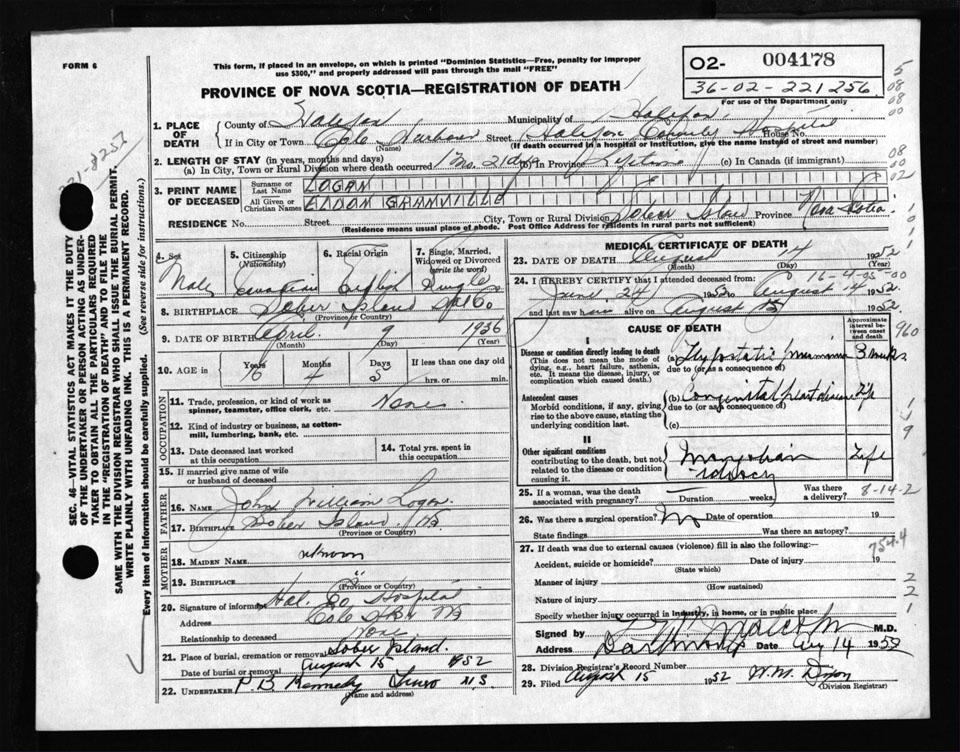 FORM 6
This form, if placed in an envelope, on which is printed "Dominion Statistics—Free, penalty for improper
use $300," and properly addressed will pass through the mail "FREE"
PROVINCE OF NOVA SCOTIA—REGISTRATION OF DEATH
O2- 004178
36-02-221256
For use of the Department only
1. PLACE OF DEATH
County of Halifax Municipality of Halifax
If in City or Town Cole Harbour (Name) Street Halifax County Hospital House No.
(If death occurred in a hospital or institution, give the name instead of street and number)
2. LENGTH OF STAY (in years, months and days)
(a) In City, Town or Rural Division where death occurred 1 mo. 21 dys (b) In Province Lifetime (c) In Canada (if immigrant)
3. PRINT NAME OF DECEASED
Surname or Last Name LOGAN
All Given or Christian Names GRANVILLE
RESIDENCE No. Street City, Town or Rural Division Sober Island Province Nova Scotia
(Residence means usual place of abode. Post Office Address for residents in rural parts not sufficient)
4. Sex Male
5. Citizenship (Nationality) Canadian
6. Racial Origin English
7. Single, Married, Widowed or Divorced (write the word) Single
8. BIRTHPLACE Sober Island Hal Co
(Province or Country)
9. DATE OF BIRTH April 9 1936
(Month) (Day) (Year)
10. AGE in Years 16 Months 4 Days 5 If less than one day old hrs. or min.
OCCUPATION
11. Trade, profession, or kind of work as spinner, teamster, office clerk, etc. None
12. Kind of industry or business, as cotton-mill, lumbering, bank, etc.
13. Date deceased last worked at this occupation
14. Total yrs. spent in this occupation
15. If married give name of wife or husband of deceased
FATHER
16. Name John William Logan
17. Birthplace Sober Island, NS
(Province or Country)
MOTHER
18. MAIDEN NAME unknown
19. BIRTHPLACE "
(Province or Country)
20. Signature of informant Hal. Co Hospital
Address Cole Hbr NS
Relationship to deceased None
21. Place of burial, cremation or removal Sober Island.
Date of burial or removal August 15 1952
22. UNDERTAKER P.B. Kennedy Truro N.S.
(Name and address)
MEDICAL CERTIFICATE OF DEATH
23. DATE OF DEATH August 14 1952
(Month) (Day) (Year)
16-4-05-00
24. I HEREBY CERTIFY that I attended deceased from:
June 24 1952 to August 14 1952
and last saw him alive on August 13 1952.
CAUSE OF DEATH
Approximate interval between onset and death
960
I
Disease or condition directly leading to death
(This does not mean the mode of dying, e.g., heart failure, asthenia, etc. It means the disease, injury, or complication which caused death.)
(a) Hypostatic pneumonia 3 weeks
due to (or as a consequence of)
Antecedent causes
Morbid conditions, if any, giving rise to the above cause, stating the underlying condition last.
(b) Congenital heart disease Life
due to (or as a consequence of)
(c)
II
Other significant conditions
contributing to the death, but not related to the disease or condition causing it.
Mongolian idiocy Life
25. If a woman, was the death associated with pregnancy? Duration weeks. Was there a delivery?
8-14-2
26. Was there a surgical operation? No Date of operation 19
State findings Was there an autopsy?
27. If death was due to external causes (violence) fill in also the following:—
754.4
Accident, suicide or homicide? Date of injury 19
(State which)
Manner of injury
(How sustained)
Nature of injury
Specify whether injury occurred in industry, in home, or in public place
Signed by Malcolm M.D.
Address Dartmouth Date Aug 14 1952
28. Division Registrar's Record Number
29. Filed August 15 1952 W.M. Dixon
(Division Registrar)
221-8252
SEC. 46—VITAL STATISTICS ACT MAKES IT THE DUTY
OF THE UNDERTAKER OR PERSON ACTING AS UNDER-
TAKER TO OBTAIN ALL THE PARTICULARS REQUIRED
IN THE "REGISTRATION OF DEATH" AND TO FILE THE
SAME WITH THE DIVISION REGISTRAR WHO SHALL ISSUE THE BURIAL PERMIT.
WRITE PLAINLY WITH UNFADING INK. THIS IS A PERMANENT RECORD.
Every item of information should be carefully supplied. (See reverse side for instructions.)